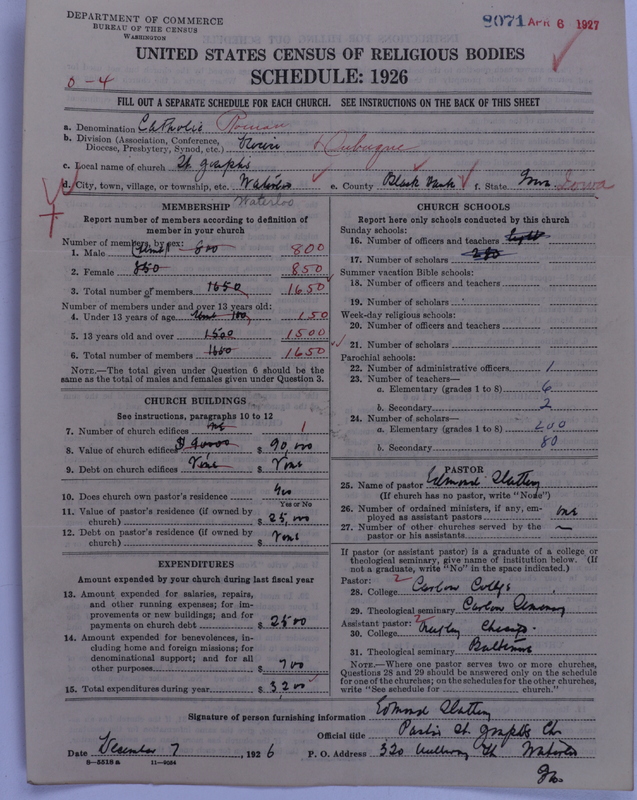 DEPARTMENT OF COMMERCE
BUREAU OF THE CENSUS
WASHINGTON
8071 APR 6 1927
UNITED STATES CENSUS OF RELIGIOUS BODIES
SCHEDULE: 1926
0-4
FILL OUT A SEPARATE SCHEDULE FOR EACH CHURCH. SEE INSTRUCTIONS ON THE BACK OF THIS SHEET
a. Denomination Catholic Roman
b. Division (Association, Conference, Diocese, Presbytery, Synod, etc.) Dubuque
c. Local name of church St.
d. City, town, village, or township, etc. Waterloo e. County Black Hawk f. State Iowa Iowa
Waterloo
MEMBERSHIP
Report number of members according to definition of member in your church
Number of members, by sex:
1. Male 800 800
2. Female 850 850
3. Total number of members 1650 1650
Number of members under and over 13 years old:
4. Under 13 years of age 150
5. 13 years old and over 1500 1500
6. Total number of members 1650 1650
NOTE.—The total given under Question 6 should be the same as the total of males and females given under Question 3.
CHURCH BUILDINGS
See instructions, paragraphs 10 to 12
7. Number of church edifices one 1
8. Value of church edifices $ 90,000
9. Debt on church edifices None $ None
10. Does church own pastor's residence Yes
Yes or No
11. Value of pastor's residence (if owned by church) $ 25,000
12. Debt on pastor's residence (if owned by church) None
EXPENDITURES
Amount expended by your church during last fiscal year
13. Amount expended for salaries, repairs, and other running expenses; for improvements or new buildings; and for payments on church debt $ 2500
14. Amount expended for benevolences, including home and foreign missions; for denominational support; and for all other purposes $ 700
15. Total expenditures during year $ 3200
CHURCH SCHOOLS
Report here only schools conducted by this church
Sunday schools:
16. Number of officers and teachers Eight
17. Number of scholars 280
Summer vacation Bible schools:
18. Number of officers and teachers
19. Number of scholars
Week-day religious schools:
20. Number of officers and teachers
21. Number of scholars
Parochial schools:
22. Number of administrative officers 1
23. Number of teachers—
a. Elementary (grades 1 to 8) 6
b. Secondary 2
24. Number of scholars—
a. Elementary (grades 1 to 8) 200
b. Secondary 80
PASTOR
25. Name of pastor Edmond Slattery
(If church has no pastor, write "None")
26. Number of ordained ministers, if any, employed as assistant pastors one
27. Number of other churches served by the pastor or his assistants
If pastor (or assistant pastor) is a graduate of a college or theological seminary, give name of institution below. (If not a graduate, write "No" in the space indicated.)
Pastor:
28. College 2 Carlow College
29. Theological seminary Carlow Seminary
Assistant pastor:
30. College 2
31. Theological seminary Baltimore
NOTE.—Where one pastor serves two or more churches, Questions 28 and 29 should be answered only on the schedule for one of the churches; on the schedules for the other churches, write "See schedule for church."
Signature of person furnishing information Edmond Slattery
Official title Pastor St.
Date December 7, 1926 P. O. Address 320 Waterloo
Ia.
8—5518a 11—9054